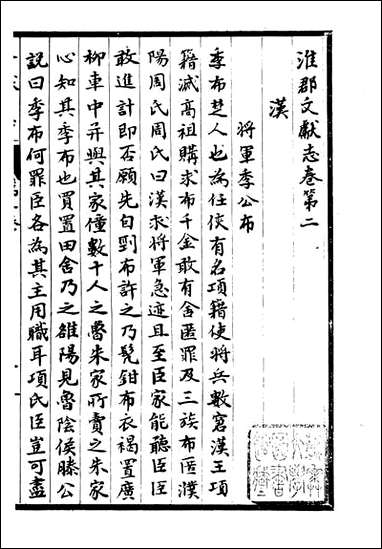 淮郡文獻志卷第二
漢
將軍季公布
季布楚人也為任俠有名項籍使將兵數窘漢王項
籍滅高祖購求布千金敢有舍匿罪及三族布匿濮
陽周氏周氏曰漢求將軍急迹且至臣家能聽臣臣
敢進計即否願先自剄布許之乃髡鉗布衣褐置廣
柳車中并與其家僮數十人之魯朱家所賣之朱家
心知其季布也買置田舍乃之雒陽見魯陰侯滕公
說曰季布何罪臣各為其主用職耳項氏臣豈可盡